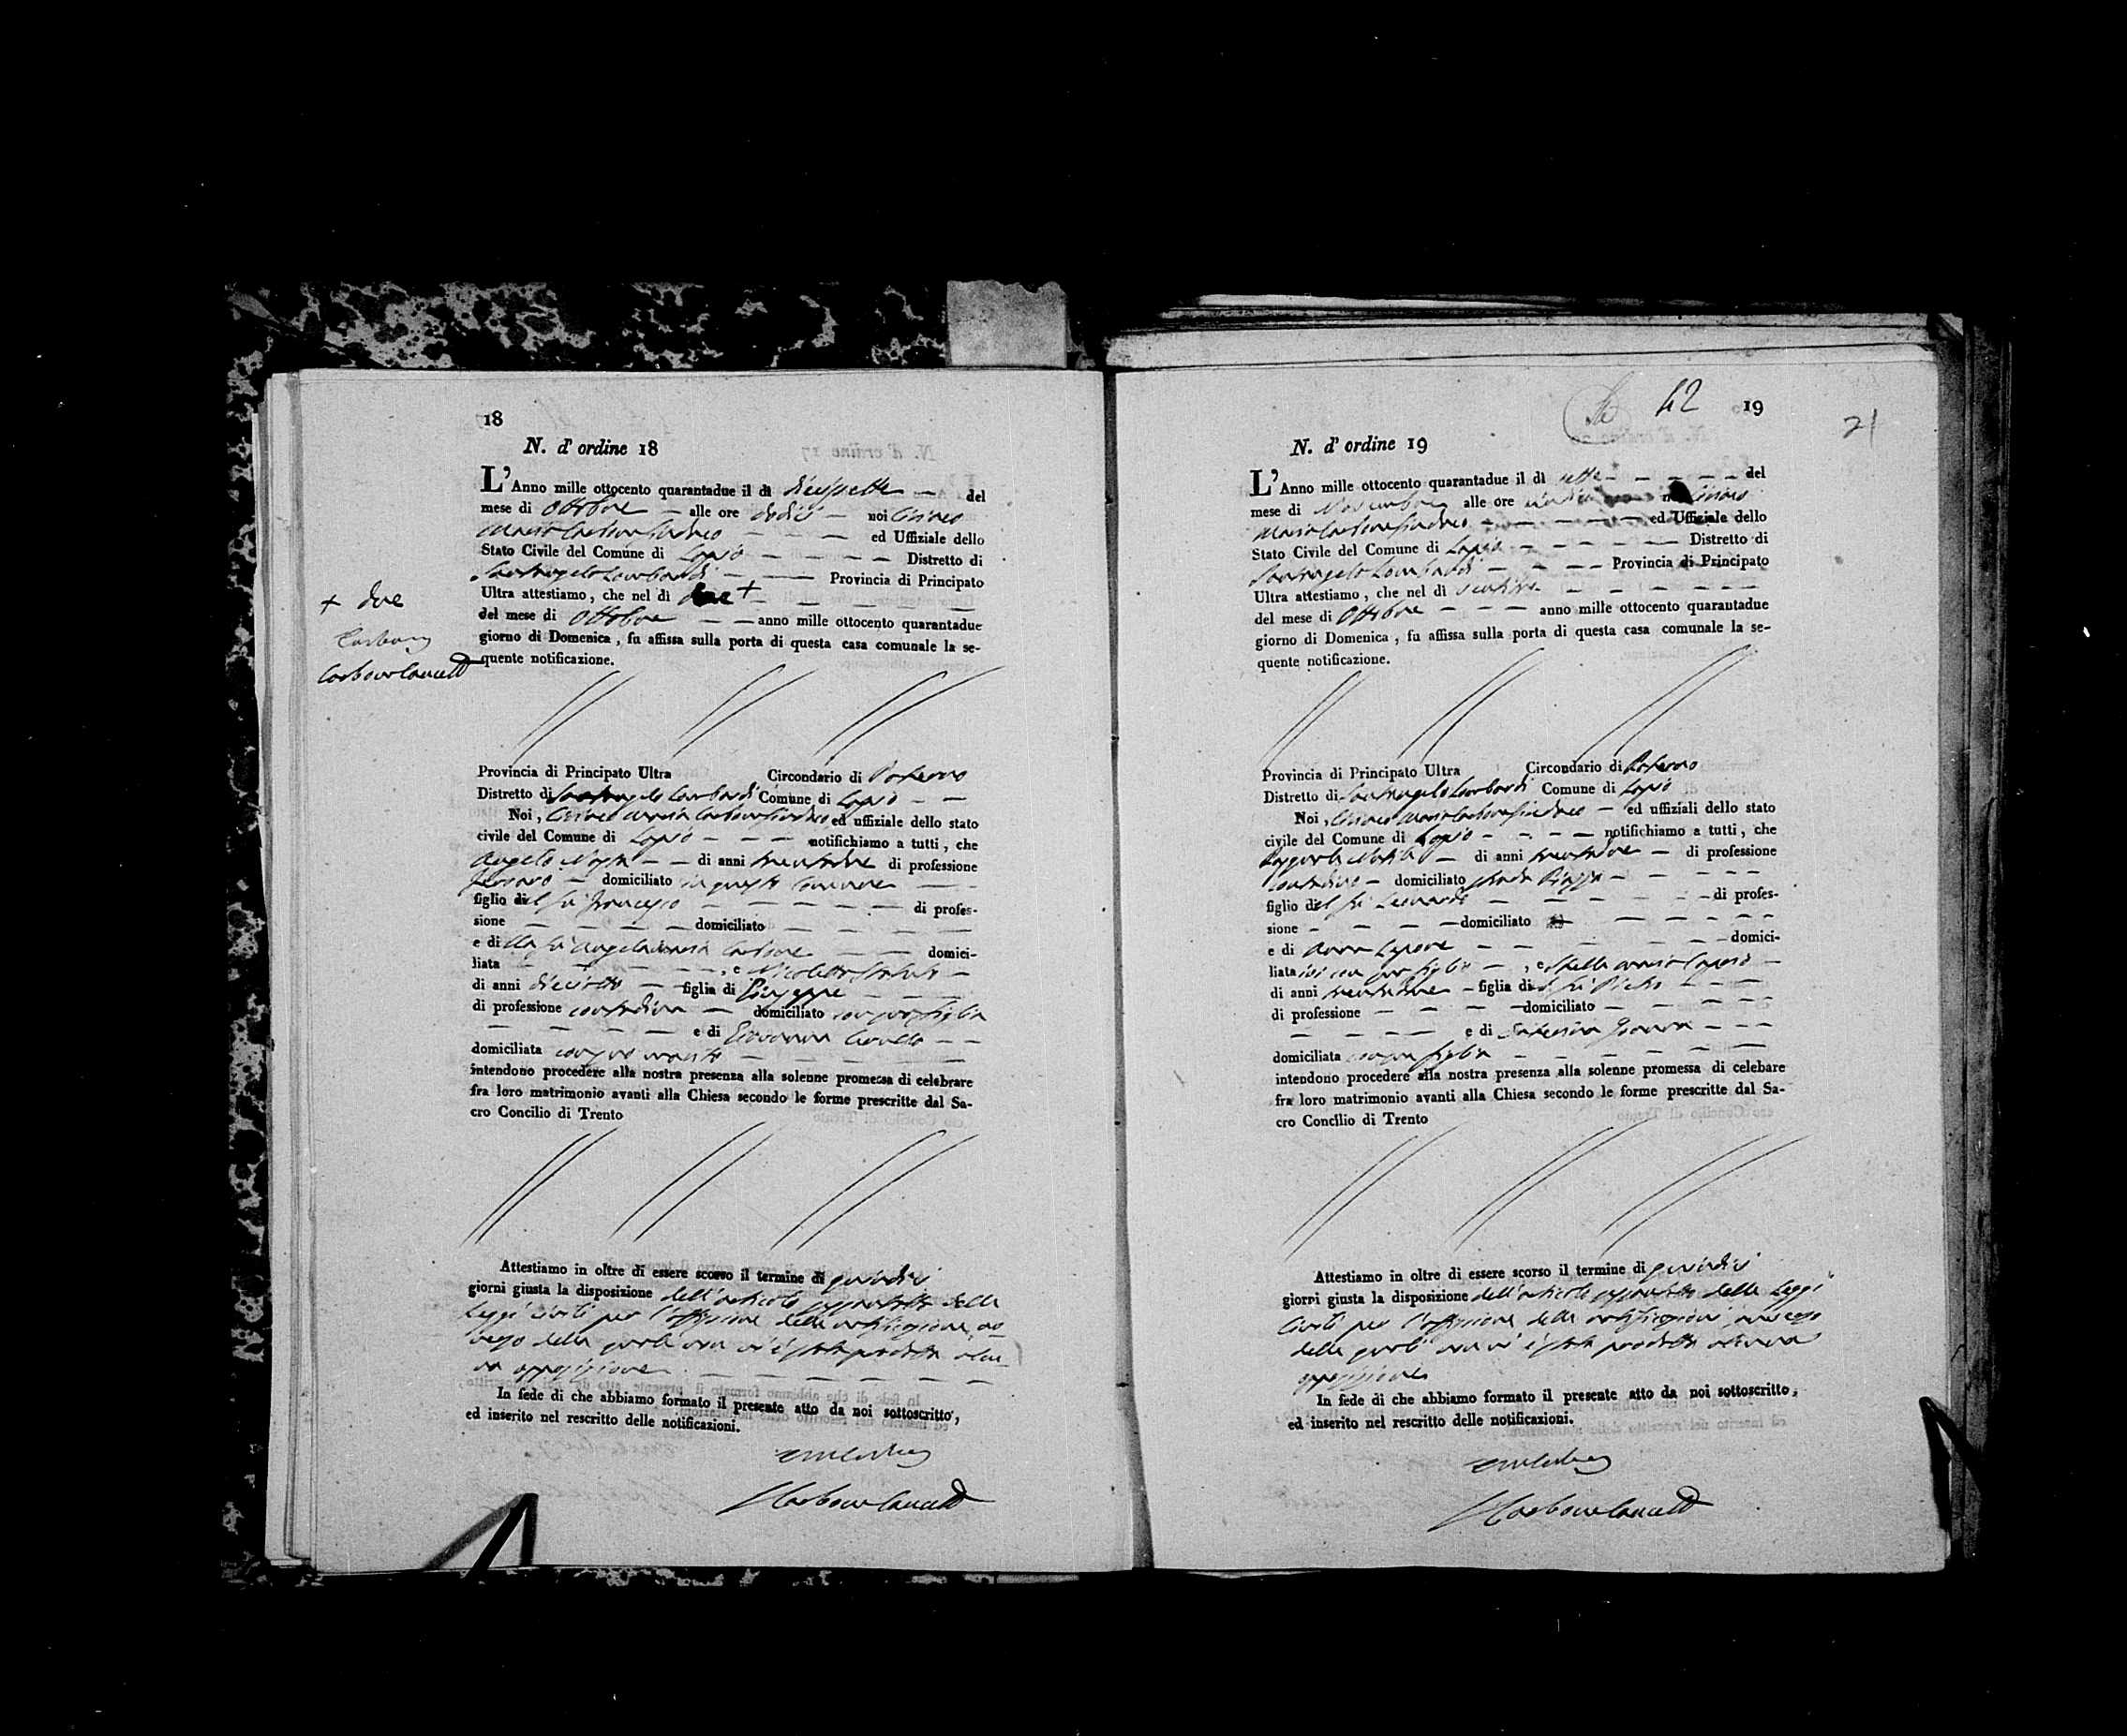 18
N. d' ordine 18
L'Anno mille ottocento quarantadue il dì diecisette del
mese di Ottobre alle ore dodici noi Ciriaco
Maria Carbone Sindaco ed Uffiziale dello
Stato Civile del Comune di Lapio Distretto di
Santangelo Lombardi Provincia di Principato
Ultra attestiamo, che nel dì due +
del mese di Ottobre anno mille ottocento quarantadue
giorno di Domenica, fu affissa sulla porta di questa casa comunale la se-
quente notificazione.
+ due
Carbone
Provincia di Principato Ultra Circondario di Paterno
Distretto di Santangelo Lombardi Comune di Lapio
Noi, Ciriaco Maria Carbone Sindaco ed uffiziale dello stato
civile del Comune di Lapio notifichiamo a tutti, che
Angelo di anni trentadue di professione
domiciliato in questo Comune
figlio del fu Francesco di profes-
sione domiciliato
e di lla fu Angelamaria Carbone domici-
liata , e Nicoletta
di anni dieciotto figlia di Giuseppe
di professione contadina domiciliato con sua figlia
e di Giovanna
domiciliata con suo marito
intendono procedere alla nostra presenza alla solenne promessa di celebrare
fra loro matrimonio avanti alla Chiesa secondo le forme prescritte dal Sa-
cro Concilio di Trento
Attestiamo in oltre di essere scorso il termine di quindici
giorni giusta la disposizione dell'articolo sessantotto delle
Leggi Civili per l'affissione della notificazione, ad
verso della quale non vi è stata prodotta alcu-
na opposizione
In fede di che abbiamo formato il presente atto da noi sottoscritto,
ed inserito nel rescritto delle notificazioni.
42 19
21
N. d' ordine 19
L'Anno mille ottocento quarantadue il dì sette del
mese di Novembre alle ore noi Ciriaco
Maria Carbone Sindaco ed Uffiziale dello
Stato Civile del Comune di Lapio Distretto di
Santangelo Lombardi Provincia di Principato
Ultra attestiamo, che nel dì ventitre
del mese di Ottobre anno mille ottocento quarantadue
giorno di Domenica, fu affissa sulla porta di questa casa comunale la se-
quente notificazione.
Provincia di Principato Ultra Circondario di Paterno
Distretto di Santangelo Lombardi Comune di Lapio
Noi, Ciriaco Maria Carbone Sindaco ed uffiziali dello stato
civile del Comune di Lapio notifichiamo a tutti, che
di anni trentadue di professione
contadino domiciliato strada Piazza
figlio del fu Leonardo di profes-
sione domiciliato
e di Anna Lepore domici-
liata ivi con suo figlio , e Stella Maria Caposo
di anni trentadue figlia di
di professione domiciliato
e di
domiciliata con sua figlia
intendono procedere alla nostra presenza alla solenne promessa di celebare
fra loro matrimonio avanti alla Chiesa secondo le forme prescritte dal Sa-
cro Concilio di Trento
Attestiamo in oltre di essere scorso il termine di quindici
giorni giusta la disposizione dell'articolo sessantotto delle Leggi
Civili per l'affissione della notificazione, adverso
della quale non vi è stata prodotta alcuna
opposizione
In fede di che abbiamo formato il presente atto da noi sottoscritto,
ed inserito nel rescritto delle notificazioni.